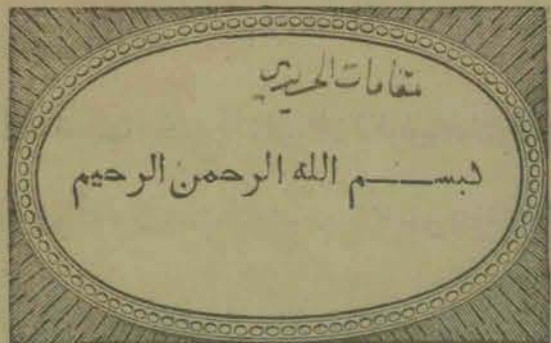 مقامات الحريري
بســـم الله الرحمن الرحيم